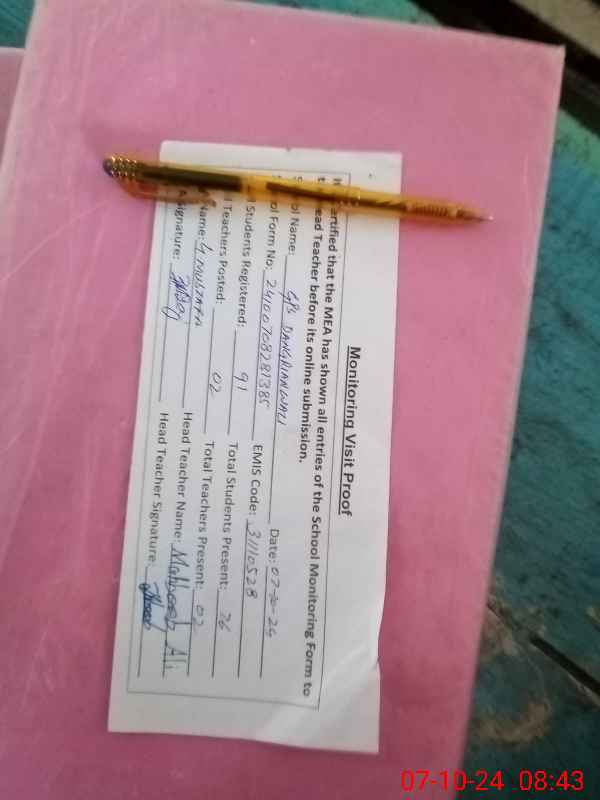 Monitoring Visit Proof
Certified that the MEA has shown all entries of the School Monitoring Form to
Head Teacher before its online submission.
Name: GPS DANGRIANWALI Date: 07-10-24
Form No: 24100708281385 EMIS Code: 31110528
Students Registered: 91 Total Students Present: 76
Teachers Posted: 02 Total Teachers Present: 02
Name: G MUSTAFA Head Teacher Name: Mahboob Ali
Signature: Head Teacher Signature:
07-10-24 08:43